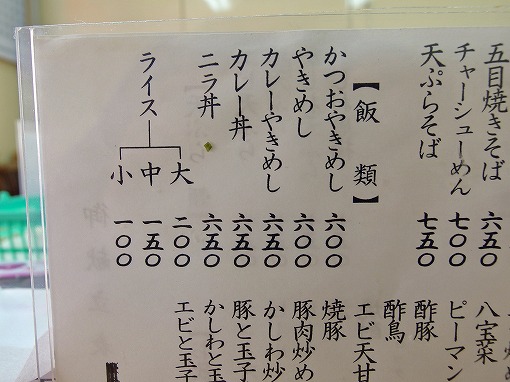 五目焼きそば 六五〇
チャーシューめん 七〇〇
天ぷらそば 七五〇
【飯類】
かつおやきめし 六〇〇
やきめし 六〇〇
カレーやきめし 六五〇
カレー丼 六五〇
ニラ丼 六五〇
ライス
大 二〇〇
中 一五〇
小 一〇〇
八宝菜
ピーマン
酢豚
酢鳥
エビ天甘
焼豚
豚肉炒め
かしわ炒
豚と玉子
かしわと玉
エビと玉子